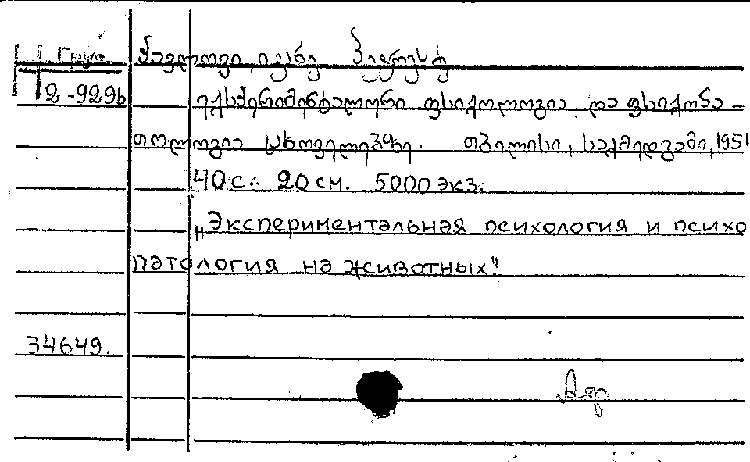 Груз. პავლოვი, ივანე პეტრეს ძე
2-929b ექსპერიმენტალური ფსიქოლოგია და ფსიქოპა-
თოლოგია ცხოველებზე. თბილისი, საქმედგამი, 1951
40 с. 20 см. 5000 экз.
„Экспериментальная психология и психо
патология на животных"
34649.